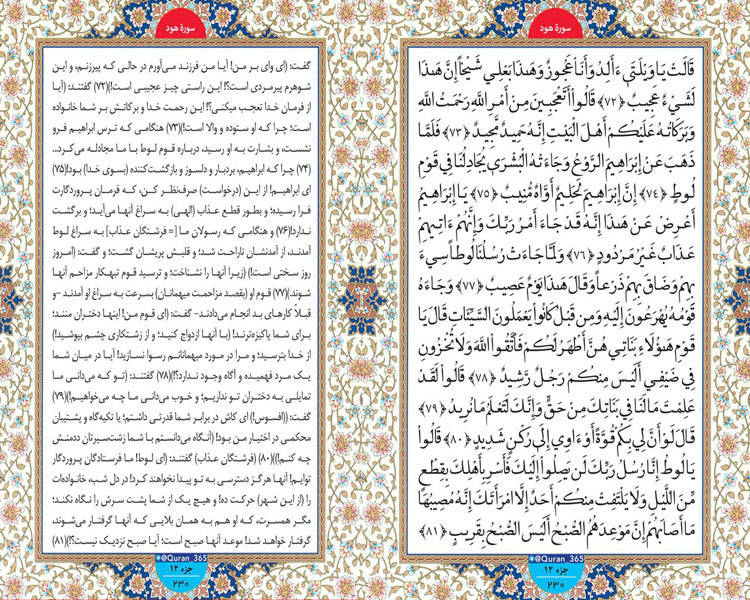 سورهٔ هود
قَالَتْ يَا وَيْلَتَىٰ ءَأَلِدُ وَأَنَا عَجُوزٌ وَهَٰذَا بَعْلِي شَيْخًا إِنَّ هَٰذَا
لَشَيْءٌ عَجِيبٌ ﴿۷۲﴾ قَالُوا أَتَعْجَبِينَ مِنْ أَمْرِ اللَّهِ رَحْمَتُ اللَّهِ
وَبَرَكَاتُهُ عَلَيْكُمْ أَهْلَ الْبَيْتِ إِنَّهُ حَمِيدٌ مَجِيدٌ ﴿۷۳﴾ فَلَمَّا
ذَهَبَ عَنْ إِبْرَاهِيمَ الرَّوْعُ وَجَاءَتْهُ الْبُشْرَىٰ يُجَادِلُنَا فِي قَوْمِ
لُوطٍ ﴿۷۴﴾ إِنَّ إِبْرَاهِيمَ لَحَلِيمٌ أَوَّاهٌ مُنِيبٌ ﴿۷۵﴾ يَا إِبْرَاهِيمُ
أَعْرِضْ عَنْ هَٰذَا إِنَّهُ قَدْ جَاءَ أَمْرُ رَبِّكَ وَإِنَّهُمْ آتِيهِمْ
عَذَابٌ غَيْرُ مَرْدُودٍ ﴿۷۶﴾ وَلَمَّا جَاءَتْ رُسُلُنَا لُوطًا سِيءَ
بِهِمْ وَضَاقَ بِهِمْ ذَرْعًا وَقَالَ هَٰذَا يَوْمٌ عَصِيبٌ ﴿۷۷﴾ وَجَاءَهُ
قَوْمُهُ يُهْرَعُونَ إِلَيْهِ وَمِنْ قَبْلُ كَانُوا يَعْمَلُونَ السَّيِّئَاتِ قَالَ يَا
قَوْمِ هَٰؤُلَاءِ بَنَاتِي هُنَّ أَطْهَرُ لَكُمْ فَاتَّقُوا اللَّهَ وَلَا تُخْزُونِ
فِي ضَيْفِي أَلَيْسَ مِنْكُمْ رَجُلٌ رَشِيدٌ ﴿۷۸﴾ قَالُوا لَقَدْ
عَلِمْتَ مَا لَنَا فِي بَنَاتِكَ مِنْ حَقٍّ وَإِنَّكَ لَتَعْلَمُ مَا نُرِيدُ ﴿۷۹﴾
قَالَ لَوْ أَنَّ لِي بِكُمْ قُوَّةً أَوْ آوِي إِلَىٰ رُكْنٍ شَدِيدٍ ﴿۸۰﴾ قَالُوا
يَا لُوطُ إِنَّا رُسُلُ رَبِّكَ لَنْ يَصِلُوا إِلَيْكَ فَأَسْرِ بِأَهْلِكَ بِقِطْعٍ
مِّنَ اللَّيْلِ وَلَا يَلْتَفِتْ مِنْكُمْ أَحَدٌ إِلَّا امْرَأَتَكَ إِنَّهُ مُصِيبُهَا
مَا أَصَابَهُمْ إِنَّ مَوْعِدَهُمُ الصُّبْحُ أَلَيْسَ الصُّبْحُ بِقَرِيبٍ ﴿۸۱﴾
@Quran_365
جزء ۱۲
۲۳۰
سورهٔ هود
گفت: (ای وای بر من! آیا من فرزند می‌آورم در حالی که پیرزنم، و این
شوهرم پیرمردی است؟! این راستی چیز عجیبی است!)(۷۲) گفتند: (آیا
از فرمان خدا تعجب میکنی؟! این رحمت خدا و برکاتش بر شما خانواده
است؛ چرا که او ستوده و والا است!)(۷۳) هنگامی که ترس ابراهیم فرو
نشست، و بشارت به او رسید، درباره قوم لوط با ما مجادله می‌کرد...
(۷۴) چرا که ابراهیم، بردبار و دلسوز و بازگشت‌کننده (بسوی خدا) بود!(۷۵)
ای ابراهیم! از این (درخواست) صرف‌نظر کن، که فرمان پروردگارت
فرا رسیده؛ و بطور قطع عذاب (الهی) به سراغ آنها می‌آید؛ و برگشت
ندارد!(۷۶) و هنگامی که رسولان ما [= فرشتگان عذاب] به سراغ لوط
آمدند، از آمدنشان ناراحت شد؛ و قلبش پریشان گشت؛ و گفت: (امروز
روز سختی است!) (زیرا آنها را نشناخت؛ و ترسید قوم تبهکار مزاحم آنها
شوند.)(۷۷) قوم او (بقصد مزاحمت میهمانان) بسرعت به سراغ او آمدند -و
قبلاً کارهای بد انجام می‌دادند- گفت: (ای قوم من! اینها دختران منند؛
برای شما پاکیزه‌ترند! (با آنها ازدواج کنید؛ و از زشتکاری چشم بپوشید!)
از خدا بترسید؛ و مرا در مورد میهمانانم رسوا نسازید! آیا در میان شما
یک مرد فهمیده و آگاه وجود ندارد؟!)(۷۸) گفتند: (تو که می‌دانی ما
تمایلی به دختران تو نداریم؛ و خوب می‌دانی ما چه می‌خواهیم!)(۷۹)
گفت: ((افسوس!) ای کاش در برابر شما قدرتی داشتم؛ یا تکیه‌گاه و پشتیبان
محکمی در اختیار من بود! (آنگاه می‌دانستم با شما زشت‌سیرتان ددمنش
چه کنم!))(۸۰) (فرشتگان عذاب) گفتند: (ای لوط! ما فرستادگان پروردگار
توایم! آنها هرگز دسترسی به تو پیدا نخواهند کرد! در دل شب، خانواده‌ات
را (از این شهر) حرکت ده! و هیچ یک از شما پشت سرش را نگاه نکند؛
مگر همسرت، که او هم به همان بلایی که آنها گرفتار می‌شوند،
گرفتار خواهد شد! موعد آنها صبح است؛ آیا صبح نزدیک نیست؟!)(۸۱)
@Quran_365
جزء ۱۲
۲۳۰